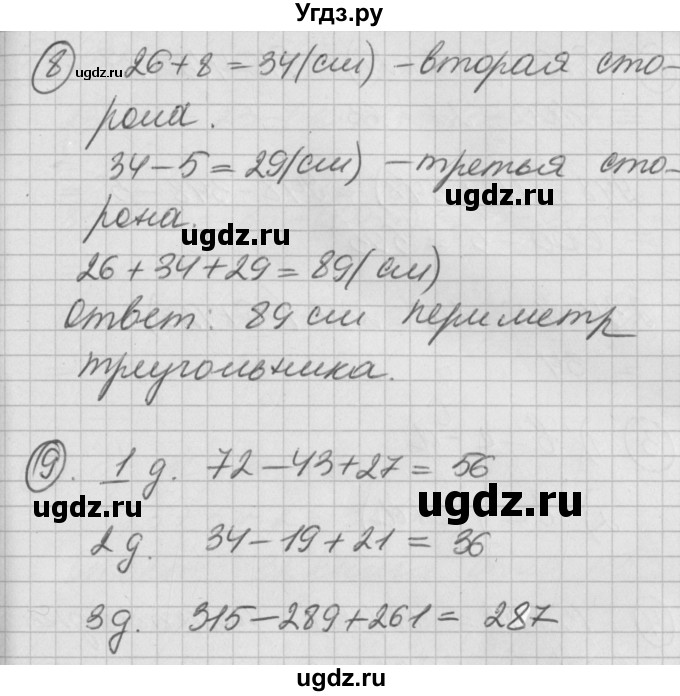 Угдз.ру
8 26+8=34(см) – вторая сто-
ugdz.ru
рона.
34-5=29(см) – третья сто-
ugdz.ru
рона.
ugdz.ru
26+34+29=89(см)
Ответ: 89 см периметр
треугольника.
9. 1 д. 72-43+27=56
ugdz.ru ugdz.ru
2 д. 34-19+21=36
3 д. 315-289+261=287
ugdz.ru